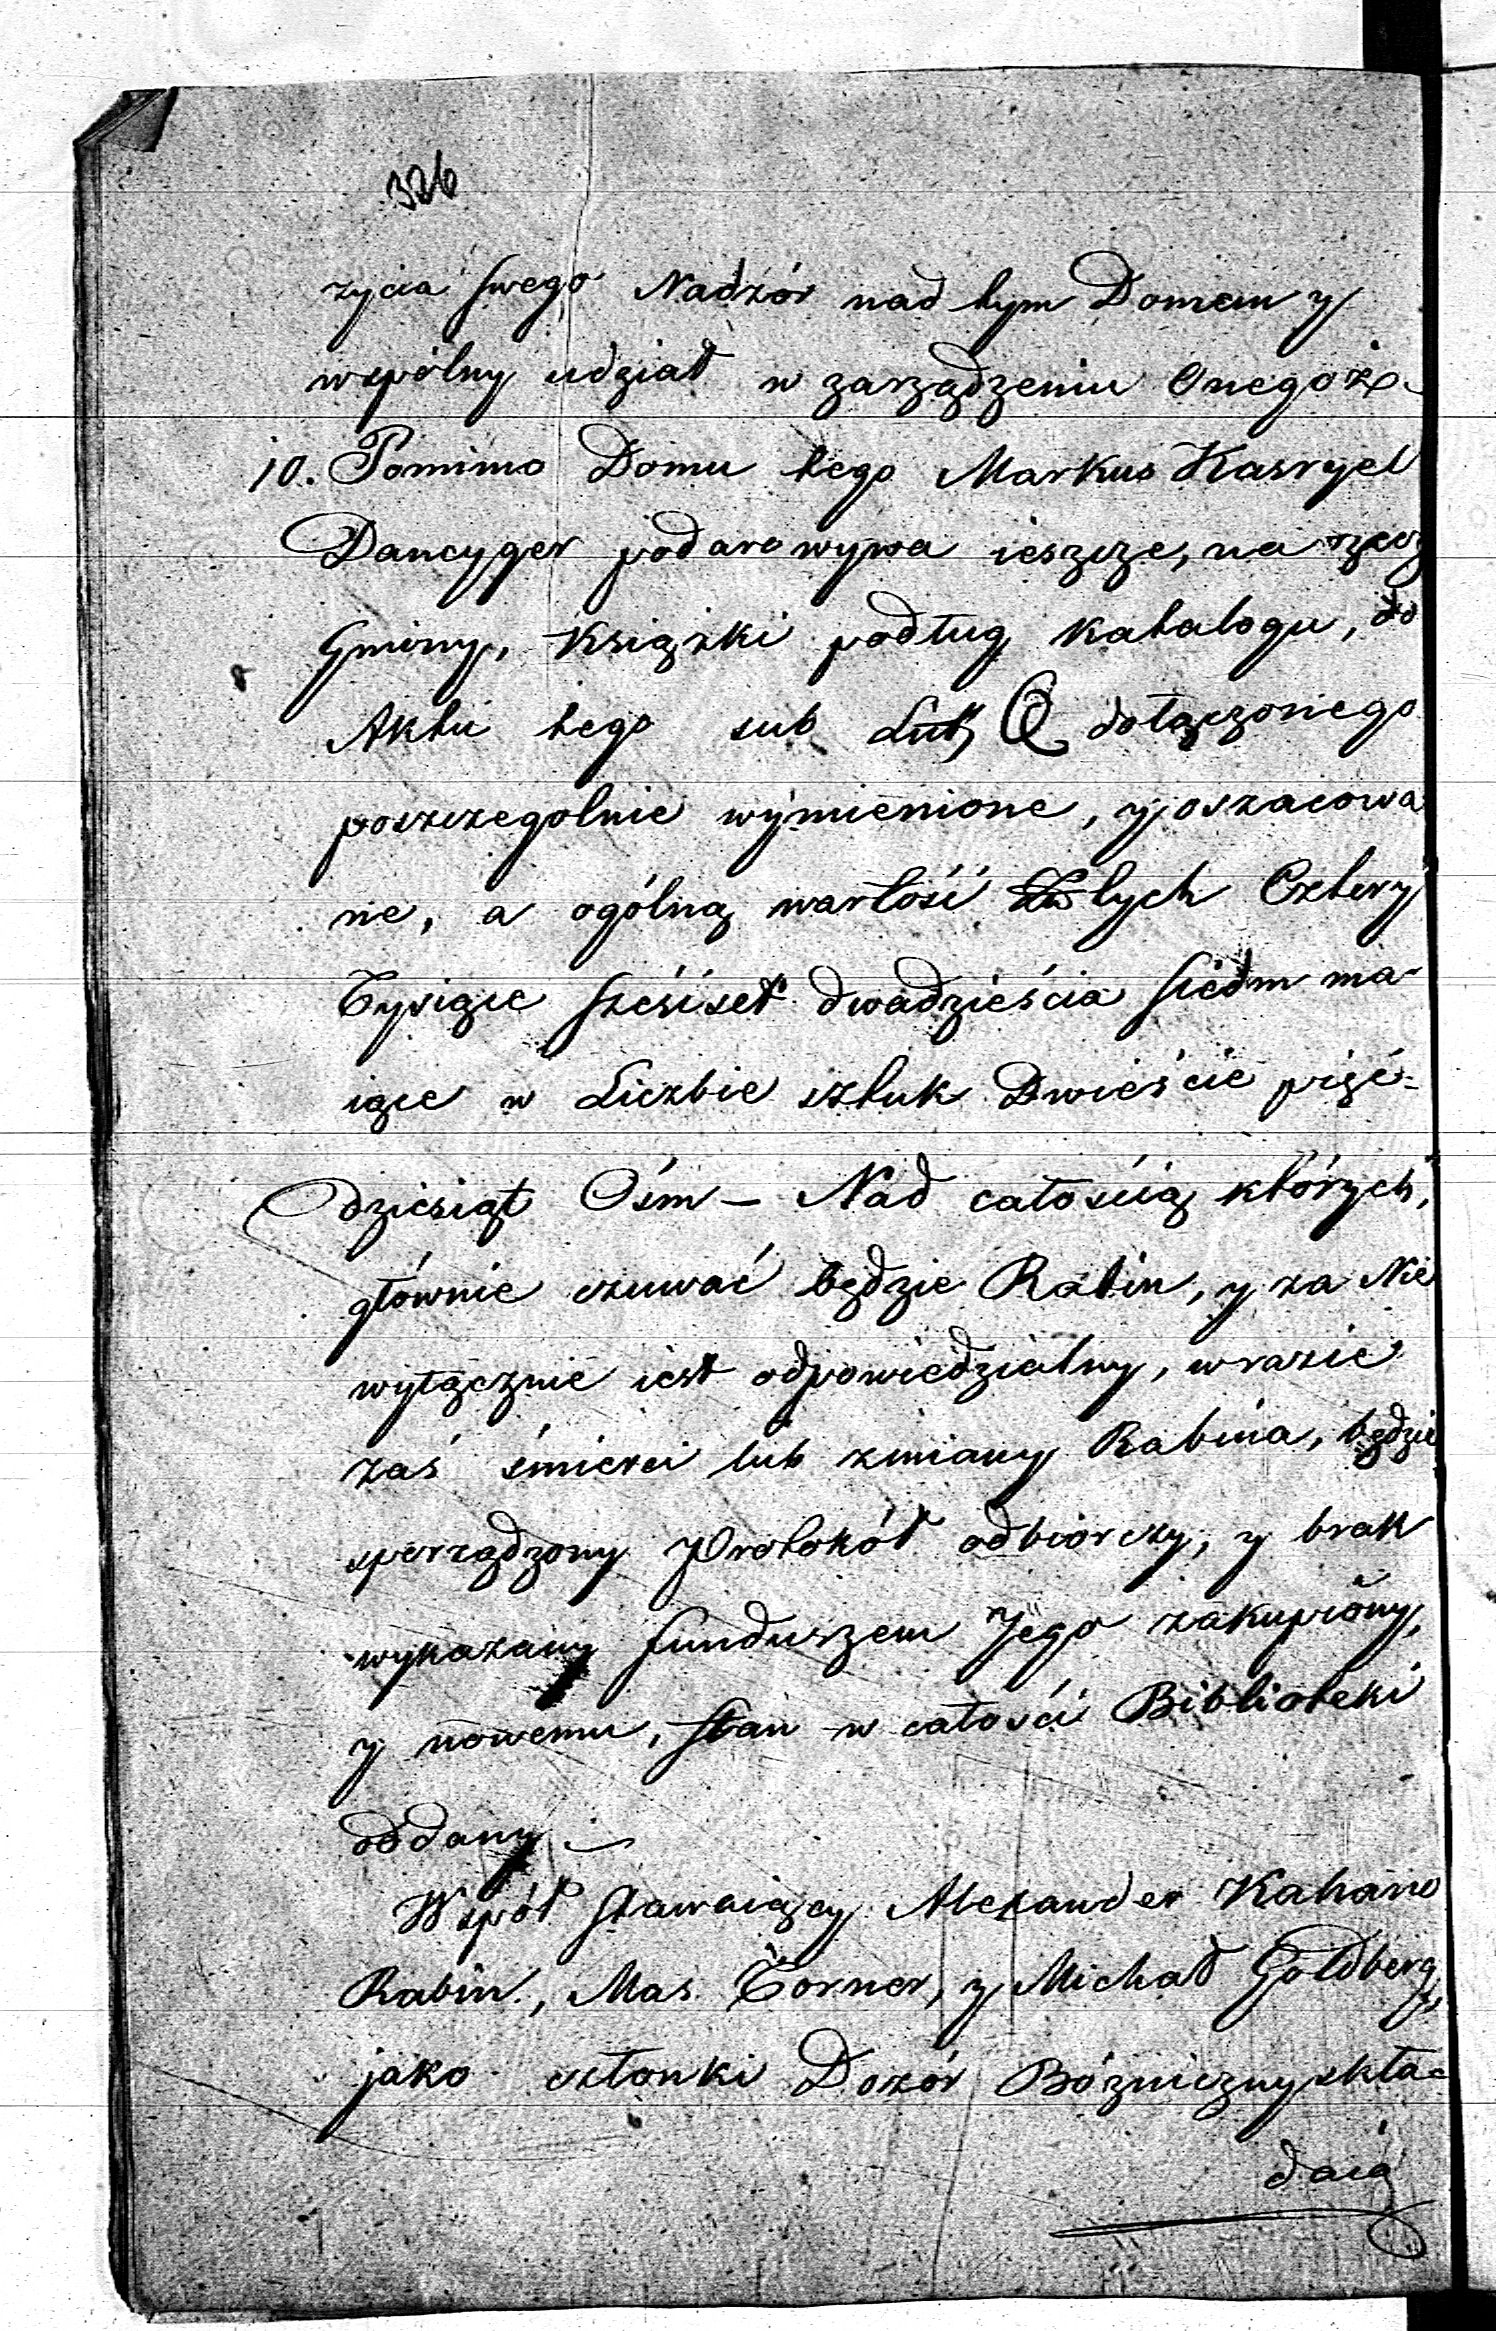 326
życia swego Nadzór nad tym Domem y
wspólny udział w zarządzeniu Onegoż.
10. Pomimo Domu tego Markus Kasryel
Dancyger podarowywa ieszcze, na rzecz
Gminy, Książki podług katalogu, do
Aktu tego sub Litt Q dołączonego
poszczegolnie wymienione, y oszacowa
ne, a ogólną wartość tych Cztery
Tysiące sześćset dwadzieścia siedm ma-
iące w Liczbie sztuk Dwieście pięć-
dziesiąt Ośm – Nad całością których,
głównie czuwać będzie Rabin, y za Nie
wyłącznie iest odpowiedzialny, w razie
zaś śmierci lub zmiany Rabina, będzie
sporządzony Protokół odbiorczy, y brak
wykazany funduszem Jego zakupiony,
y nowemu, stan w całości Biblioteki
oddany –
Współ stawaiący Alexander Kahane
Rabin, Mas. Torner, y Michał Goldberg,
jako członki Dozór Bóżniczny skła-
daią